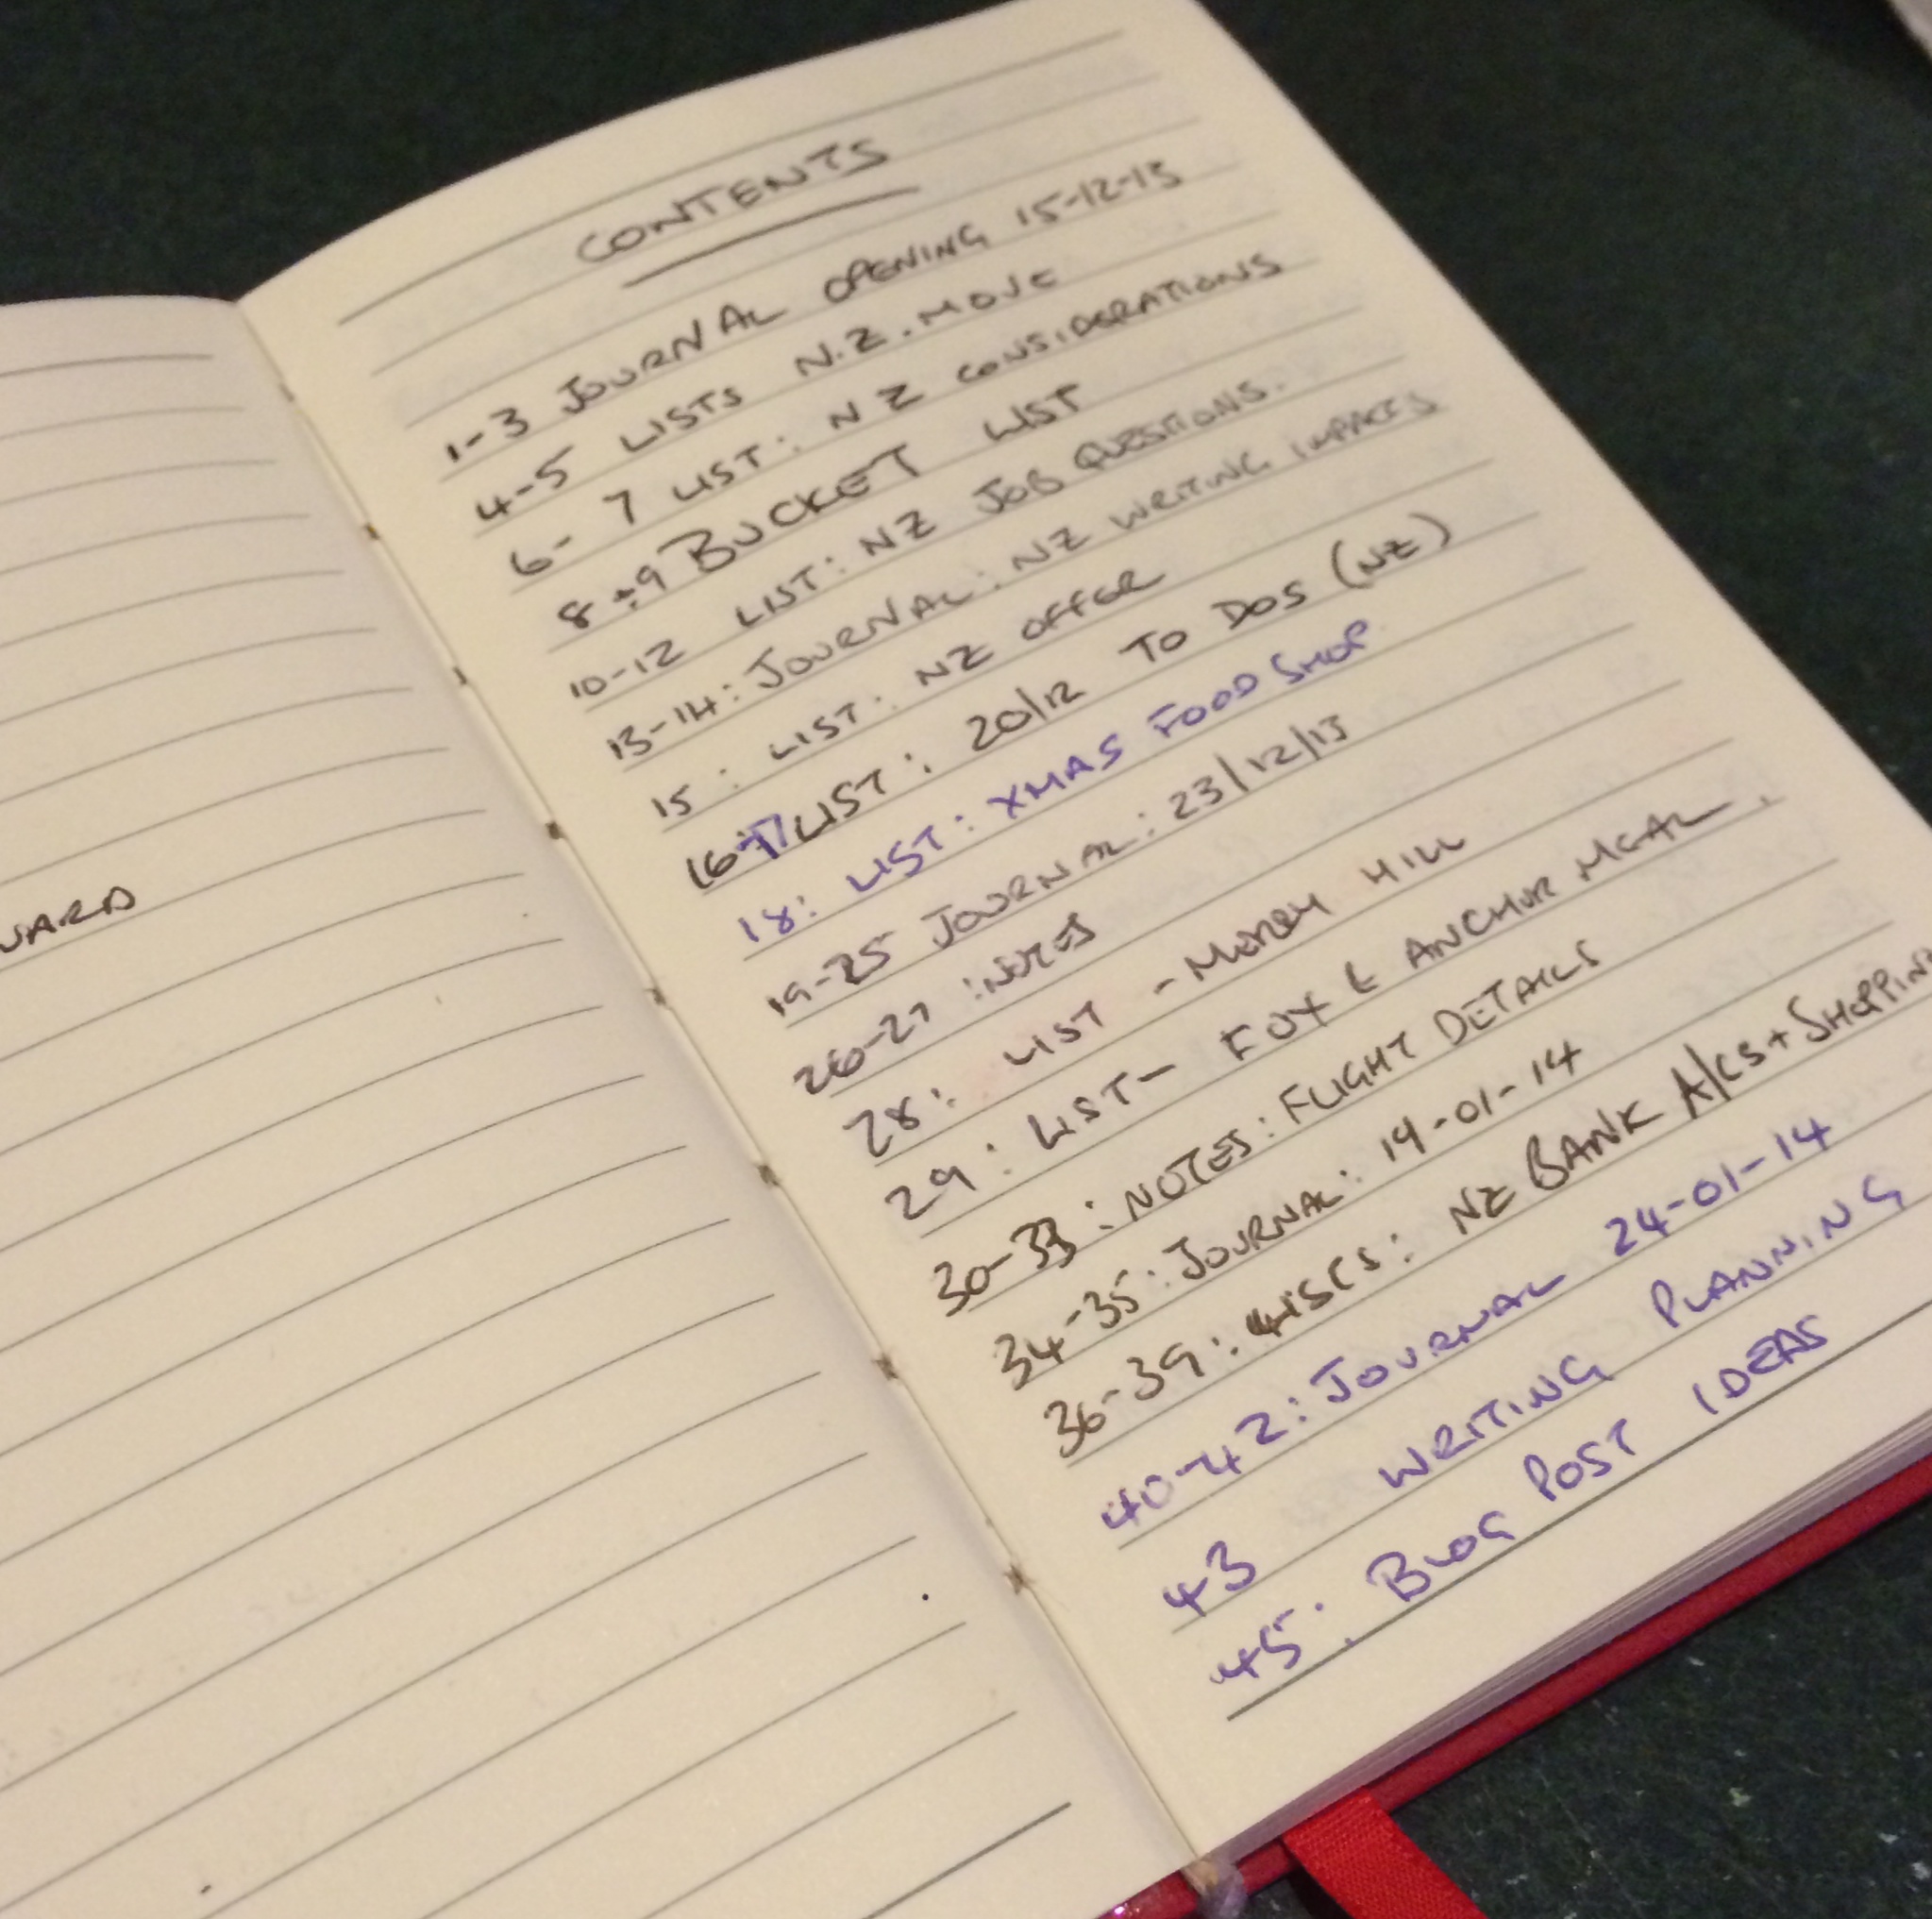 WARD
CONTENTS
1-3 JOURNAL OPENING 15-12-13
4-5 LISTS N.Z. MOVE
6-7 LIST: NZ CONSIDERATIONS
8+9 BUCKET LIST
10-12 LIST: NZ JOB QUESTIONS.
13-14: JOURNAL: NZ WRITING IMPACTS
15: LIST: NZ OFFER
16-17 LIST: 20/12 TO DOS (NZ)
18: LIST: XMAS FOOD SHOP
19-25 JOURNAL: 23/12/13
26-27: NOTES
28: LIST - MONEY HILL
29: LIST - FOX & ANCHOR MEAL.
30-33: NOTES: FLIGHT DETAILS
34-35: JOURNAL: 19-01-14
36-39: NZ BANK A/CS + SHOPPING
40-42: JOURNAL 24-01-14
43 WRITING PLANNING
45: BLOG POST IDEAS